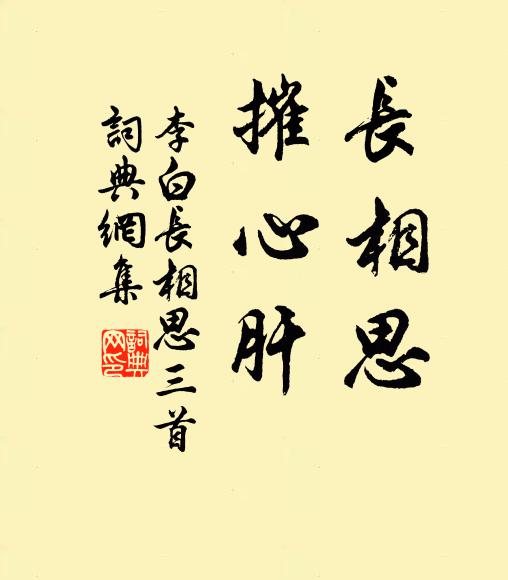 長相思
摧心肝
李白長相思三首
詞典網集
詞典網印